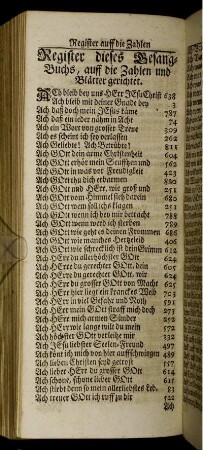 Register auff die Zahlen
Register dieses Gesang-
Buchs, auff die Zahlen und
Blätter gerichtet.
ACh bleib bey uns HErr JEsu Christ 638
Ach bleib mit deiner Gnade bey 3
Ach daß doch mein JEsus käme 787
Ach daß ein ieder nähm in Acht 74
Ach ein Wort von grosser Treue 309
Ach es scheint ich sey verlassen 262
Ach Geliebte! Ach Betrübte! 811
Ach GOtt dein arme Christenheit 604
Ach GOtt erhör mein Seufftzen und 162
Ach GOtt in was vor Freudigkeit 423
Ach GOtt thu dich erbarmen 380
Ach GOtt und HErr, wie groß und 251
Ach GOtt vom Himmel sieh darein 606
Ach GOtt wem soll ichs klagen 251
Ach GOtt wenn ich bey mir betracht 788
Ach GOtt wenn werd ich sterben 789
Ach GOtt wie geht es deinen Frommen 685
Ach GOtt wie manches Hertzeleid 406
Ach GOtt wie schrecklich ist dein Grimm 612
Ach HErr du allerhöchster GOtt 624
Ach HErr du gerechter GOtt, dein 661
Ach HErr du gerechter GOtt, wir 624
Ach HErr du grosser GOtt von Macht 625
Ach HErr hier liegt ein kranckes Weib 723
Ach HErr in viel Gefahr und Noth 591
Ach HErr mein GOtt straff mich doch 273
Ach HErr mich armen Sünder 252
Ach HErr wie lange wilt du mein 572
Ach höchster GOtt verleihe mir 332
Ach JEsu liebster Seelen-Freund 497
Ach könt ich mich von hier auffschwingen 489
Ach lieben Christen seyd getrost 657
Ach lieber HErr du grosser GOtt 614
Ach schone, schone lieber GOtt 615
Ach stirbt denn so mein allerliebstes Leb. 83
Ach treuer GOtt ich ruff zu dir 22
Ach